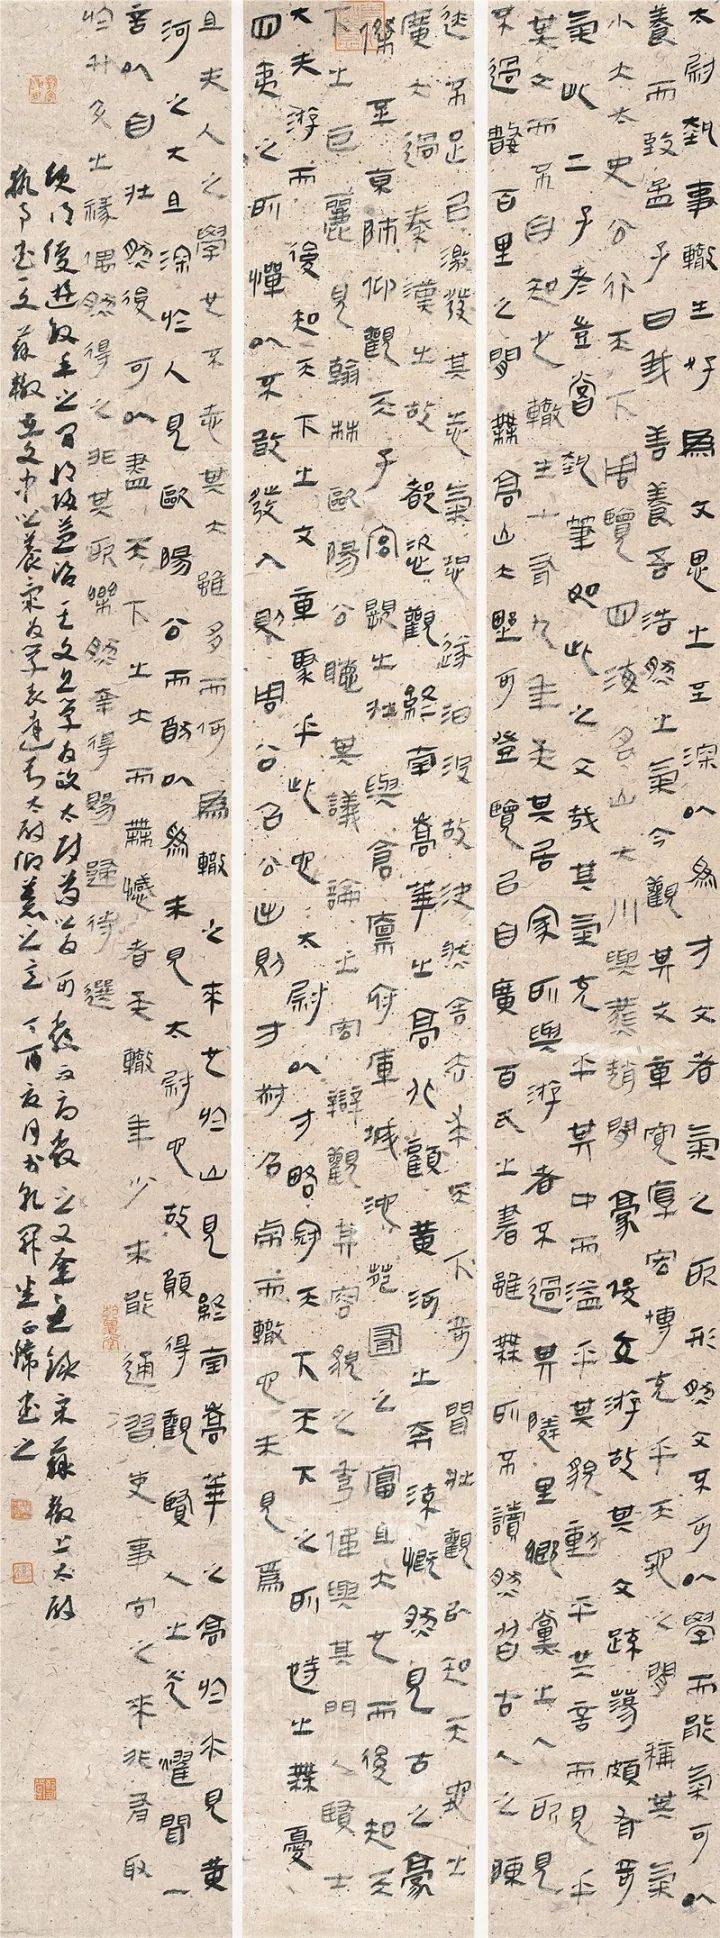 太尉執事轍生好為文思之至深以為才文者氣之所形然文不可以學而能氣可以
養而致孟子曰我善養吾浩然之氣今觀其文章寬厚宏博充乎天地之間稱其氣
小大太史公行天下周覽四海名山大川與燕趙間豪俊交游故其文疏蕩頗有奇
氣此二子者豈嘗執筆如此之文哉其氣充乎其中而溢乎其貌動乎其言而見乎
其文而不自知也轍生十有九年矣其居家所與游者不過其隣里鄉黨之人所見
不過數百里之間無高山大野可登覽以自廣百氏之書雖無所不讀然皆古人之陳
迹不足以激發其志氣恐遂汩沒故決然舍去求天下奇聞壯觀以知天地之
廣大過秦漢之故都恣觀終南嵩華之高北顧黃河之奔流慨然見古之豪
傑至京師仰觀天子宮闕之壯與倉廩府庫城池苑囿之富且大也而後知天
下之巨麗見翰林歐陽公聽其議論之宏辯觀其容貌之秀偉與其門人賢士
大夫游而後知天下之文章聚乎此也太尉以才略冠天下天下之所恃之無憂
四夷之所憚以不敢發入則周公召公出則方叔召虎而轍也未見焉
且夫人之學也不志其大雖多而何為轍之來也於山見終南嵩華之高於水見黃
河之大且深於人見歐陽公而猶以為未見太尉也故願得觀賢人之光耀聞一
言以自壯然後可以盡天下之大而無憾者矣轍年少未能通習吏事向之來非有取
於升斗之祿偶然得之非其所樂然幸得賜歸待選
使得優游數年之間將歸益治其文且學為政太尉苟以為可教而辱教之又幸矣錄宋蘇轍上太尉
執事書一文蘇轍文中以養氣為學太尉之丁酉夏月書之